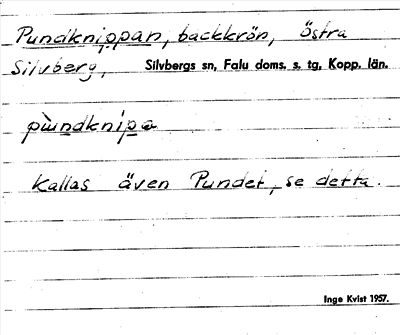 Pundknippan, backkrön, Östra
Silvberg, Silvbergs sn, Falu doms. s. tg, Kopp. län.
pùndknipa
Kallas även Pundet, se detta.
Inge Kvist 1957.